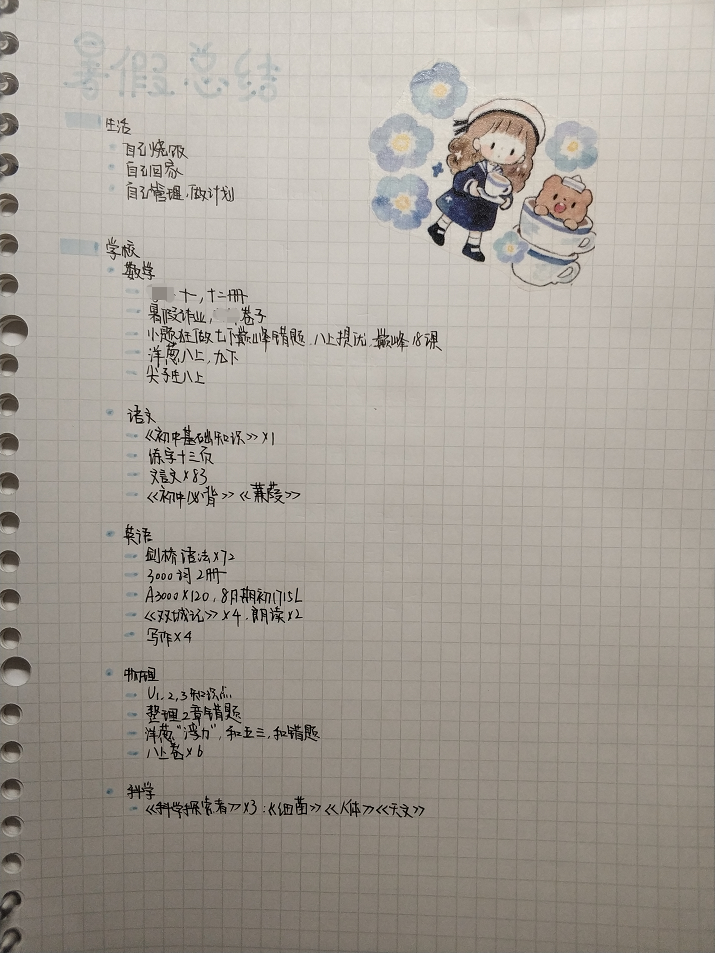 暑假总结
生活
自己烧饭
自己回家
自己管理,做计划
学校
数学
十,十二册
暑假作业, 卷子
小题狂做七下巅峰错题,八上提优,巅峰18课
洋葱八上,九下
尖子生八上
语文
《初中基础知识》×1
练字十三页
文言文×83
《初中必背》《蒹葭》
英语
剑桥语法×72
3000词2册
A3000×120,8月期初1715L
《双城记》×4,朗读×2
写作×4
物理
U1,2,3知识点
整理2章错题
洋葱“浮力”,和五三,和错题
八上卷×6
科学
《科学探索者》×3:《细菌》《人体》《天文》